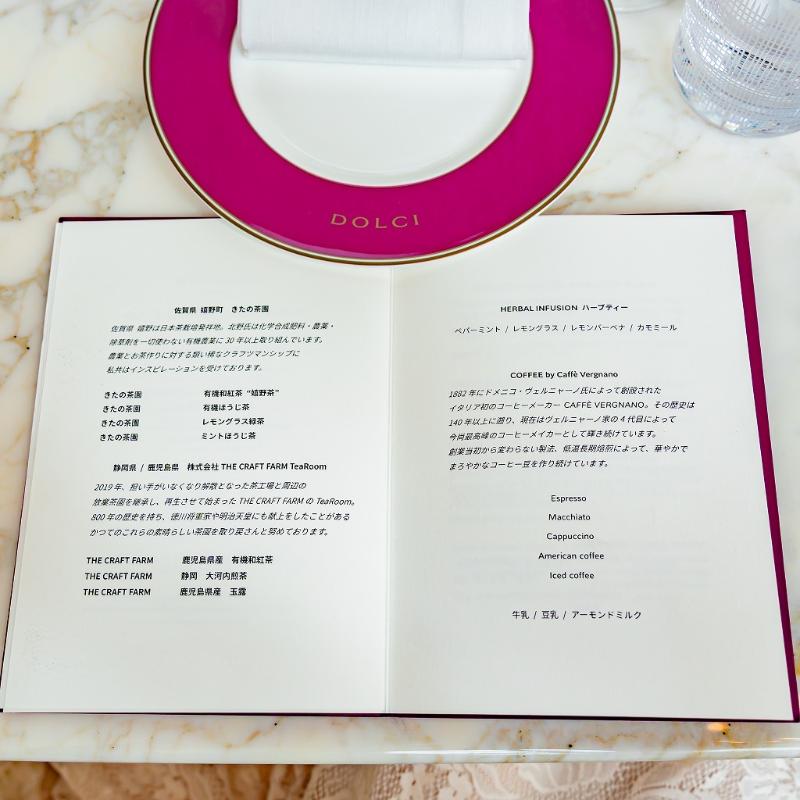 DOLCI
佐賀県 嬉野町 きたの茶園
佐賀県 嬉野は日本茶栽培発祥地。北野氏は化学合成肥料・農薬・
除草剤を一切使わない有機農業に30年以上取り組んでいます。
農業とお茶作りに対する類い稀なクラフツマンシップに
私共はインスピレーションを受けております。
きたの茶園 有機和紅茶 “嬉野茶”
きたの茶園 有機ほうじ茶
きたの茶園 レモングラス緑茶
きたの茶園 ミントほうじ茶
静岡県 / 鹿児島県 株式会社 THE CRAFT FARM TeaRoom
2019年、担い手がいなくなり解散となった茶工場と周辺の
放棄茶園を継承し、再生させて始まった THE CRAFT FARM の TeaRoom。
800年の歴史を持ち、徳川将軍家や明治天皇にも献上をしたことがある
かつてのこれらの素晴らしい茶園を取り戻さんと努めております。
THE CRAFT FARM 鹿児島県産 有機和紅茶
THE CRAFT FARM 静岡 大河内煎茶
THE CRAFT FARM 鹿児島県産 玉露
HERBAL INFUSION ハーブティー
ペパーミント / レモングラス / レモンバーベナ / カモミール
COFFEE by Caffè Vergnano
1882年にドメニコ・ヴェルニャーノ氏によって創設された
イタリア初のコーヒーメーカー CAFFÈ VERGNANO。その歴史は
140年以上に遡り、現在はヴェルニャーノ家の4代目によって
今尚最高峰のコーヒーメイカーとして輝き続けています。
創業当初から変わらない製法、低温長期焙煎によって、華やかで
まろやかなコーヒー豆を作り続けています。
Espresso
Macchiato
Cappuccino
American coffee
Iced coffee
牛乳 / 豆乳 / アーモンドミルク